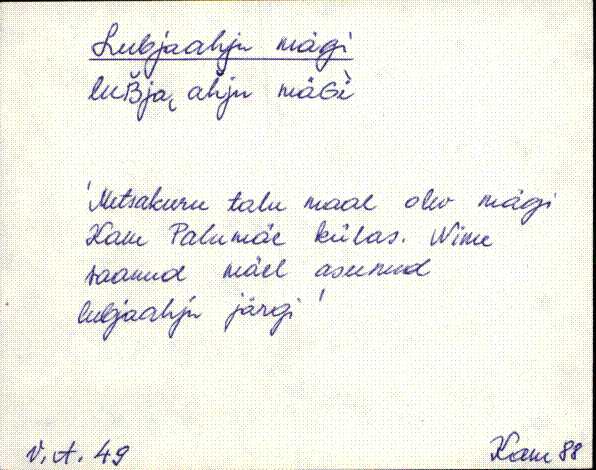 Lubjaahju mägi
luB̆ja, ahju mäGì
'Metsakuru talu maal olev mägi
Kam Palumäe külas. Nime
saanud mäel asunud
lubjaahju järgi'
V. A. 49
Kam 88